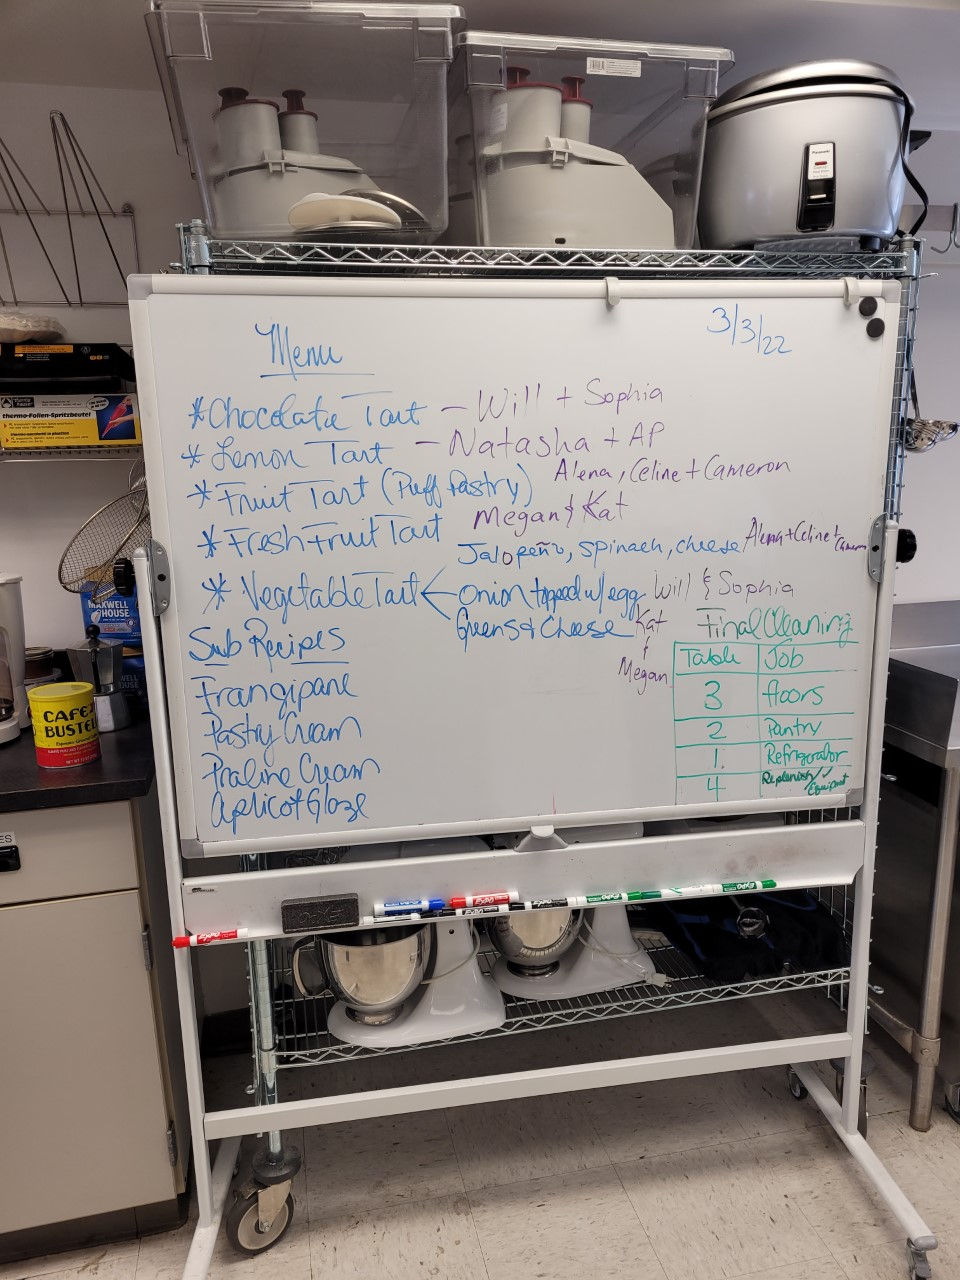 Panasonic
Menu
3/3/22
*Chocolate Tart - Will + Sophia
*Lemon Tart - Natasha + AP
*Fruit Tart (Puff Pastry) Alena, Celine + Cameron
*Fresh Fruit Tart Megan & Kat
*Vegetable Tart
Jalopeño, spinach, cheese Alena + Celine + Cameron
Onion topped w/ egg Will & Sophia
Greens & Cheese Kat & Megan
Sub Recipes
Frangipane
Pastry Cream
Praline Cream
Apricot Glaze
Final Cleaning
Table Job
3 floors
2 Pantry
1. Refrigerator
4 Replenish / Equipment
thermo-Folien-Spritzbeutel
MAXWELL HOUSE
CAFE
BUSTEL
ES
EXPO
EXPO
EXPO
EXPO